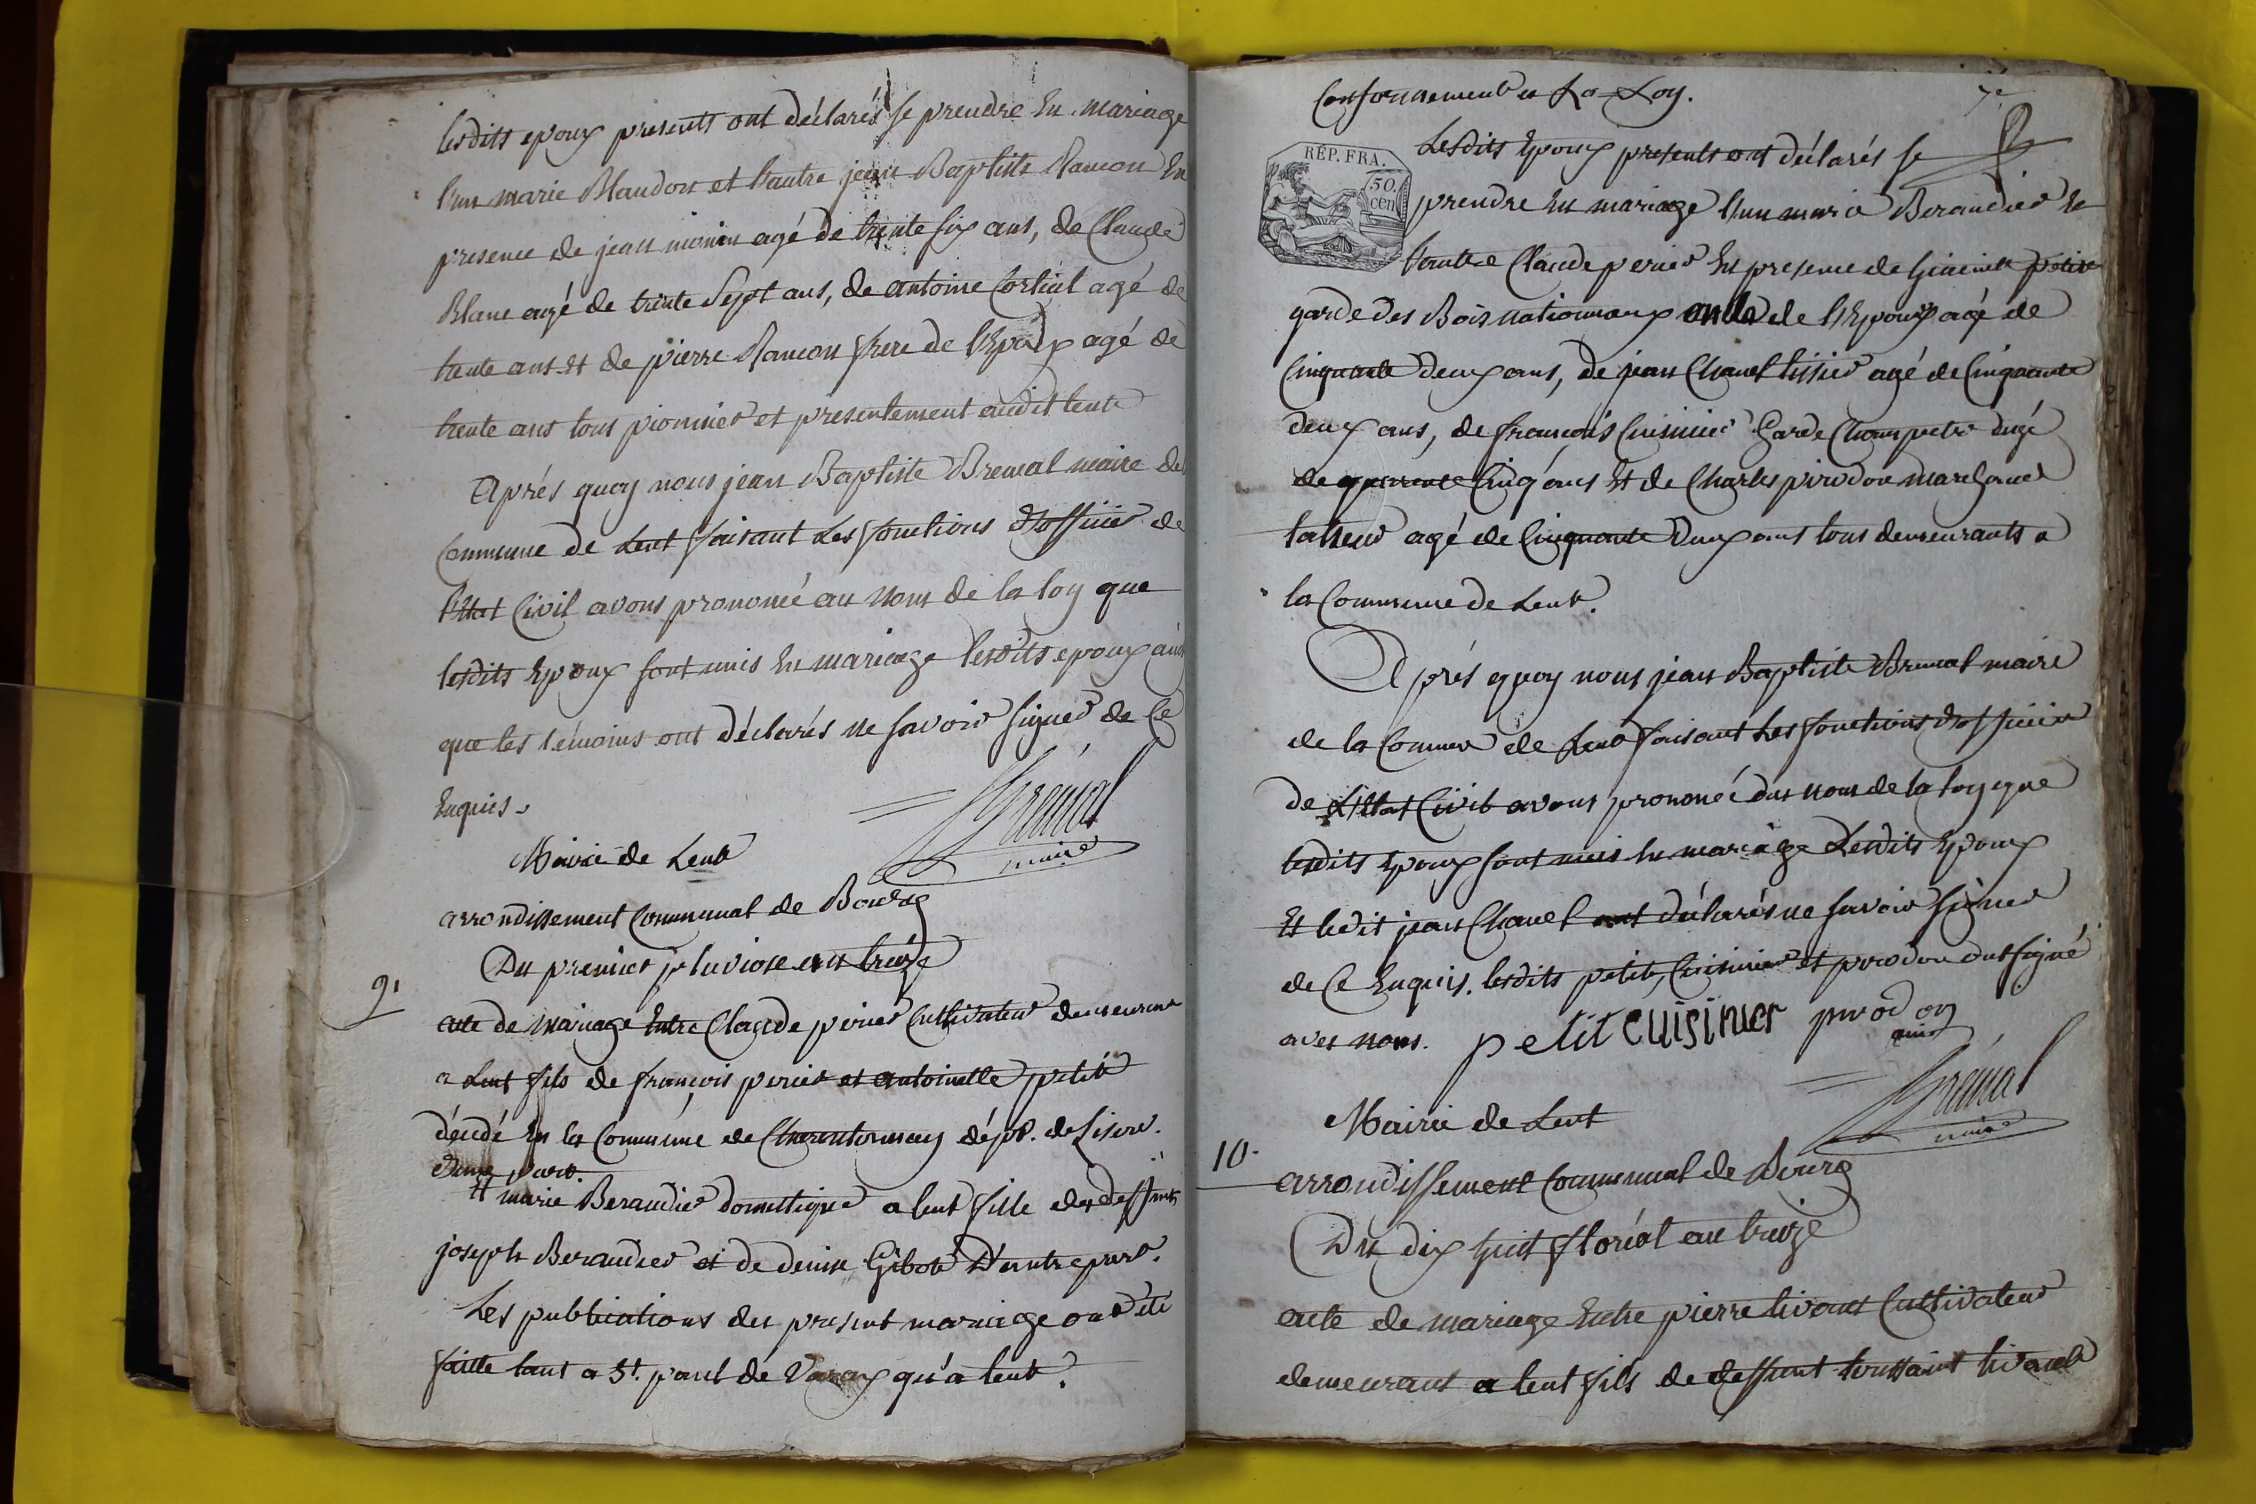 lesdits epoux presents ont déclarés se prendre En mariage
l'un marie Blaudon et l'autre jean Baptiste Rancon En
presence de jean monin agé de trente six ans, de Claude
Blanc agé de trente Sept ans, de antoine Cortial agé de
trente ans et de pierre Rancon frere de l'Epoux agé de
trente ans tous pionnier et presentement audit lent
Aprés quoy nous jean Baptiste Breval maire de
Commune de Lent faisant Les fonctions d'officier de
l'Etat Civil avons prononcé au Nom de la loy que
lesdits Epoux sont unis En mariage lesdits epoux
que les témoins ont déclarés ne savoir signer de Ce
Enquis.
Breval
maire
Mairie de Lent
arrondissement Communal de Bourg
Du premier pluviose an treize
9.
acte de mariage Entre Claude perier Cultivateur demeurant
a Lent fils de françois perier et antoinette petit
décédé En la Commune de dép. de Lisere.
d'une part.
Et marie Beraudier domestique a lent fille des deffunts
joseph Beraudier et de denise Gibot D'autre part.
Les publications du present mariage ont été
faitte tant a St. paul de Varax qu'a lent.
Conformement a La Loy.
7e
Lesdits Epoux presents ont déclarés se
RÉP. FRA.
50.
cen
prendre En mariage l'un marie Beraudier Et
l'autre Claude perier En presence de petit
garde des Bois nationnaux oncle de l'Epoux agé de
Cinquante deux ans, de jean Chanel tissier agé de Cinquante
deux ans, de françois Cuisinier Garde Champetre agé
de quarante Cinq ans Et de Charles pirodon marchand
tailleur agé de Cinquante Deux ans tous demeurants a
la Commune de Lent.
Aprés quoy nous jean Baptiste Breval maire
de la Commune de Lent faisant Les fonctions d'officier
de L'Etat Civil avons prononcé au nom de la loy que
lesdits Epoux sont unis En mariage Lesdits Epoux
Et ledit jean Chanel ont déclarés ne savoir signer
de Ce Enquis. lesdits petit, Cuisinier et pirodon ont signé
avec nous. petit cuisinier pirodon
Breval
maire
Mairie de Lent
10.
arrondissement Communal de Bourg
Du dix huit floréal an treize
acte de mariage Entre pierre Cultivateur
demeurant a lent fils de deffunt toussaint